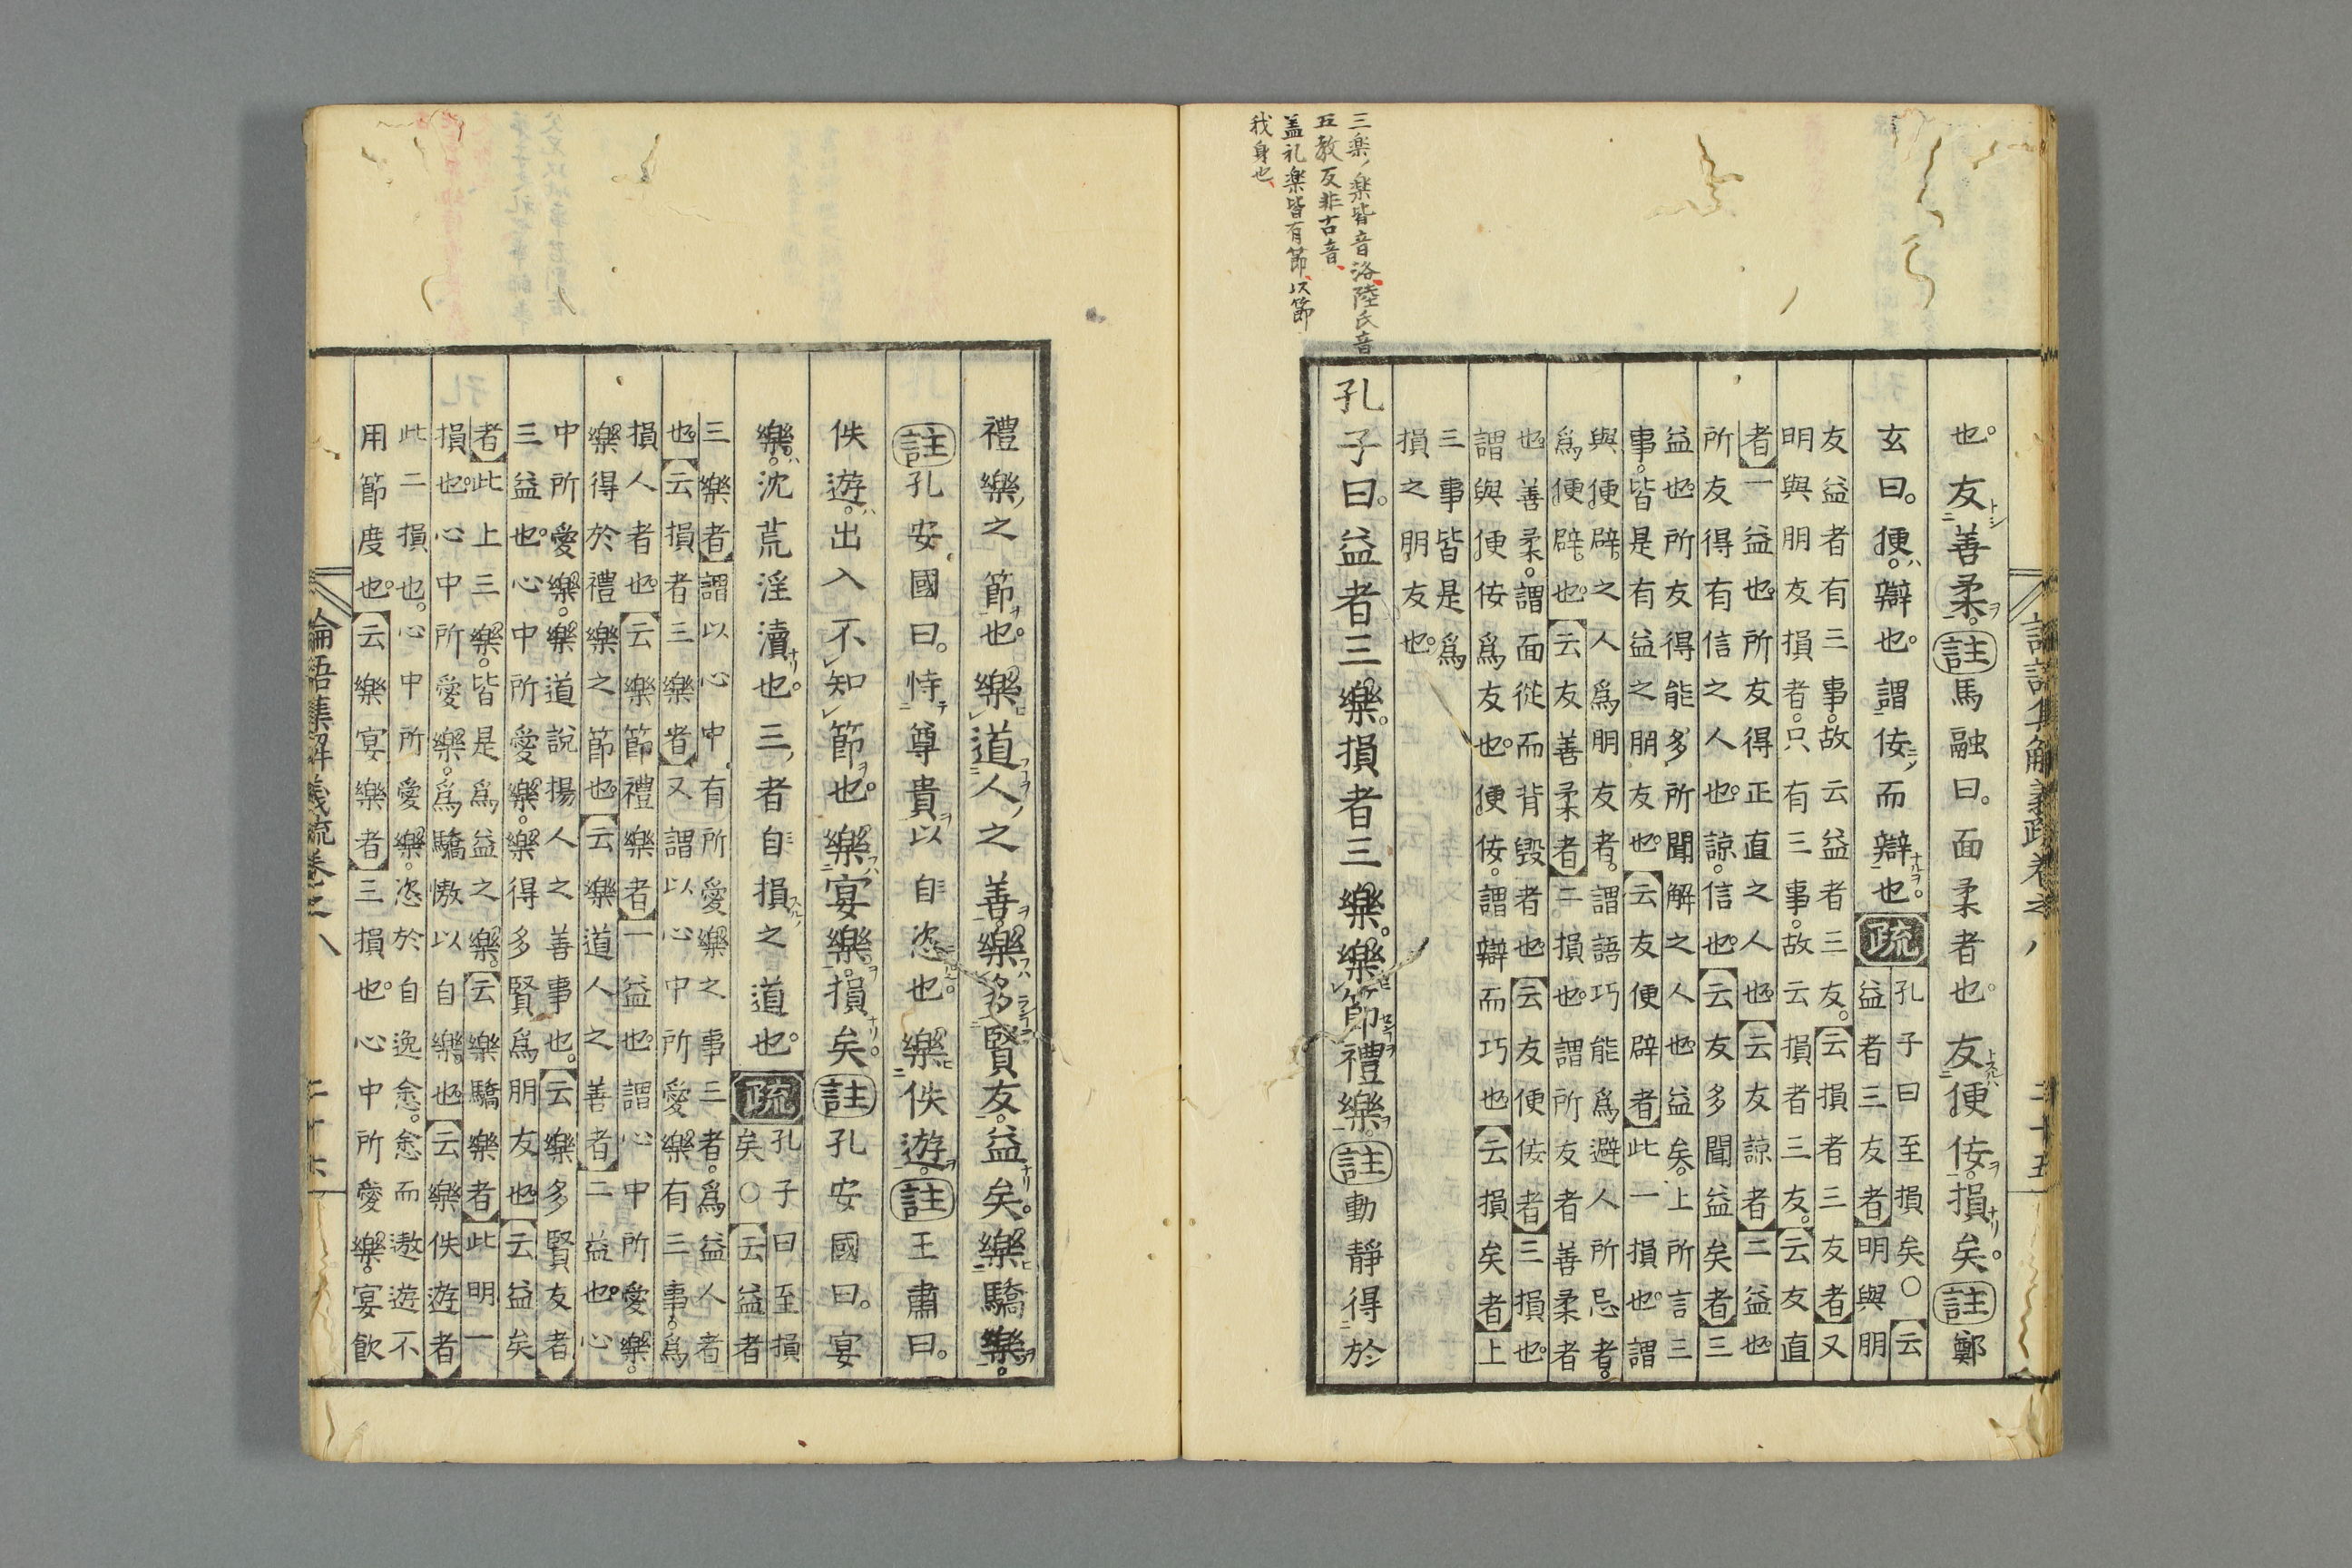 三楽ノ楽皆音洛陸氏音
五教反非古音
盖礼楽皆有節以節
我身也
也友善柔註馬融曰面柔者也友便佞損矣註鄭
玄曰便辯也謂佞而辯也疏
孔子曰至損矣〇云
益者三友者明與朋
友益者有三事故云益者三友云損者三友者又
明與朋友損者只有三事故云損者三友云友直
者一益也所友得正直之人也云友諒者二益也
所友得有信之人也諒信也云友多聞益矣者三
益也所友得能多所聞解之人也益矣上所言三
事皆是有益之朋友也云友便辟者此一損也謂
與便辟之人爲朋友者謂語巧能爲避人所忌者
爲便辟也云友善柔者二損也謂所友者善柔者
也善柔謂面從而背毀者也云友便佞者三損也
謂與便佞爲友也便佞謂辯而巧也云損矣者上
三事皆是爲
損之朋友也
孔子曰益者三樂損者三樂樂節禮樂註動靜得於
論語集解義疏卷之八
二十五
禮樂之節也樂道人之善樂多賢友益矣樂驕樂
註孔安國曰恃尊貴以自恣也樂佚遊註王肅曰
佚遊出入不知節也樂宴樂損矣註孔安國曰宴
樂沈荒淫瀆也三者自損之道也疏
孔子曰至損
矣〇云益者
三樂者謂以心中有所愛樂之事三者爲益人者
也云損者三樂者又謂以心中所愛樂有三事爲
損人者也云樂節禮樂者一益也謂心中所愛樂
樂得於禮樂之節也云樂道人之善者二益也心
中所愛樂樂道說揚人之善事也云樂多賢友者
三益也心中所愛樂樂得多賢爲朋友也云益矣
者此上三樂皆是爲益之樂云樂驕樂者此明一
損也心中所愛樂爲驕慠以自樂也云樂佚遊者
此二損也心中所愛樂恣於自逸愈愈而遨遊不
用節度也云樂宴樂者三損也心中所愛樂宴飲
論語集解義疏卷之八
二十六